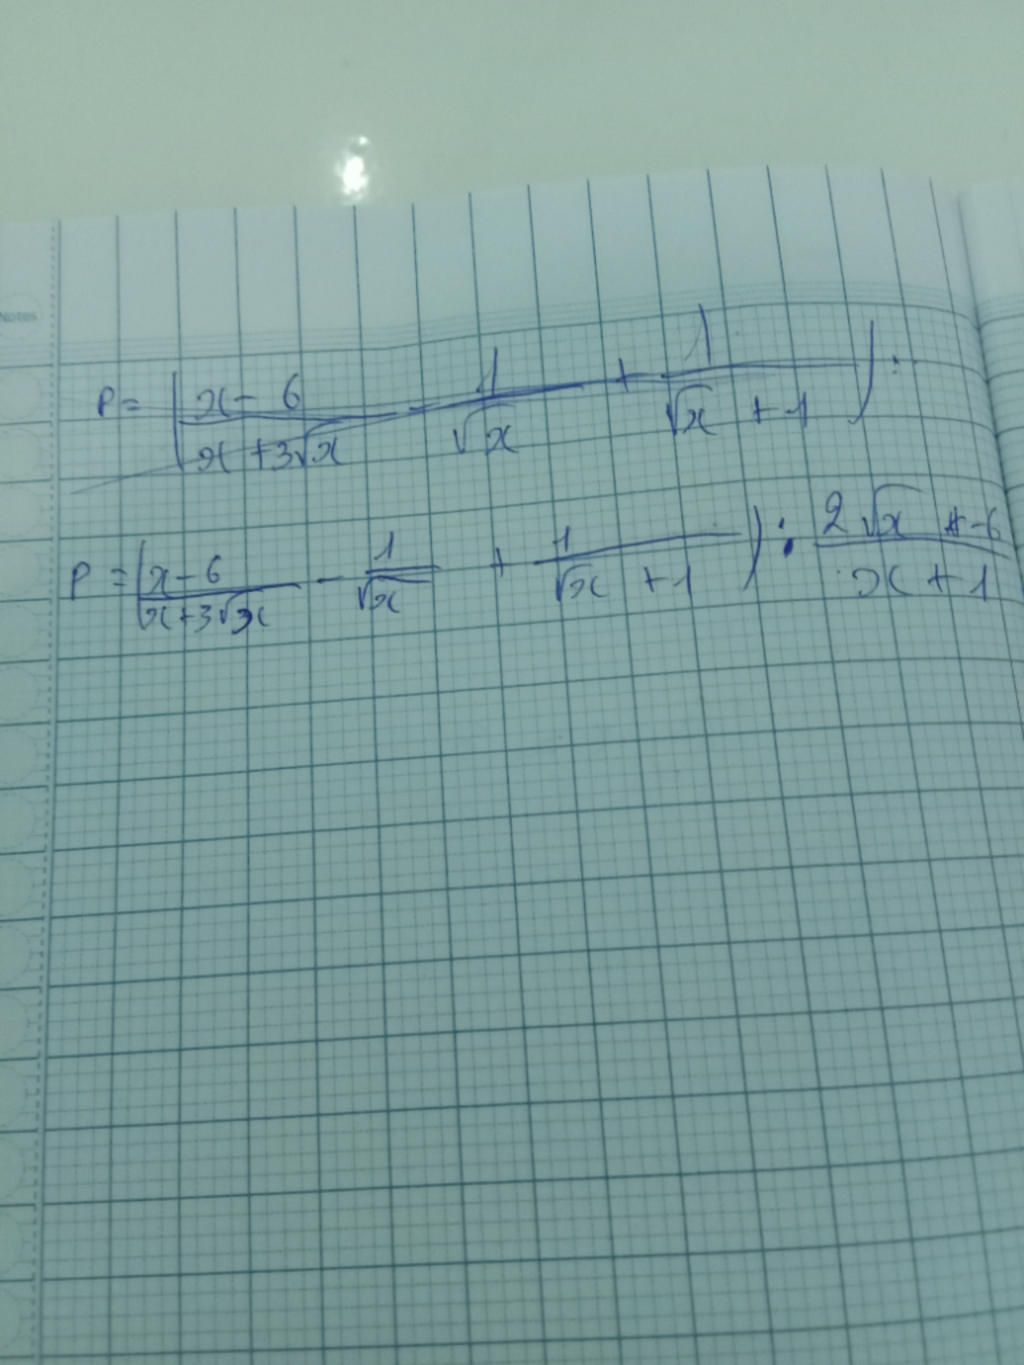 Notes
P = (x - 6 / x + 3√x - 1 / √x + 1 / √x + 1) :
P = (x - 6 / x + 3√x - 1 / √x + 1 / √x + 1) : 2√x - 6 / x + 1